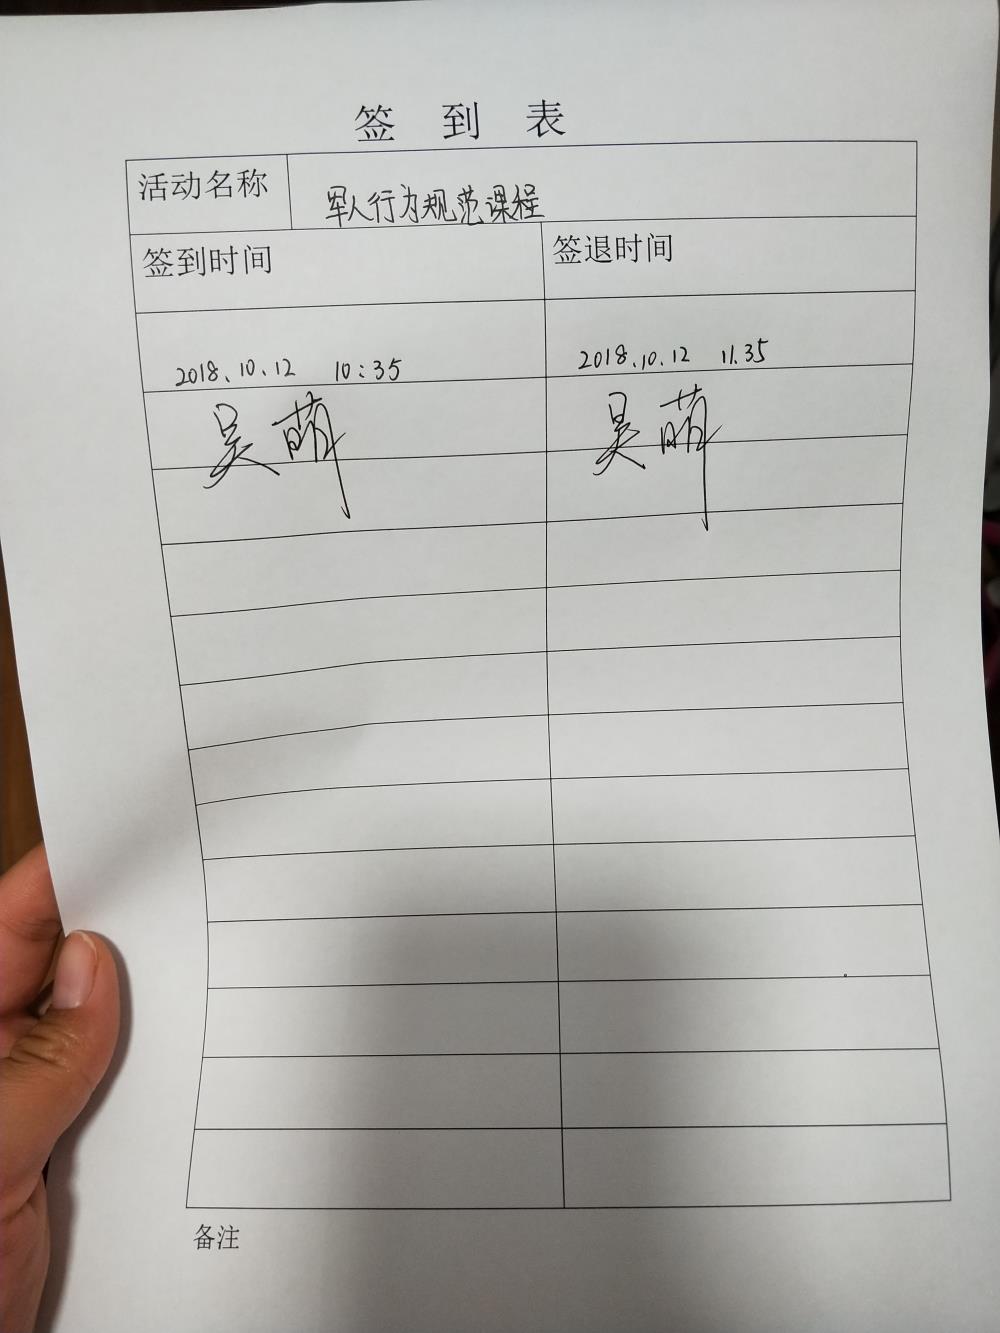 签 到 表
活动名称 军人行为规范课程
签到时间 签退时间
2018.10.12 10:35 2018.10.12 11.35
吴萌 吴萌
备注